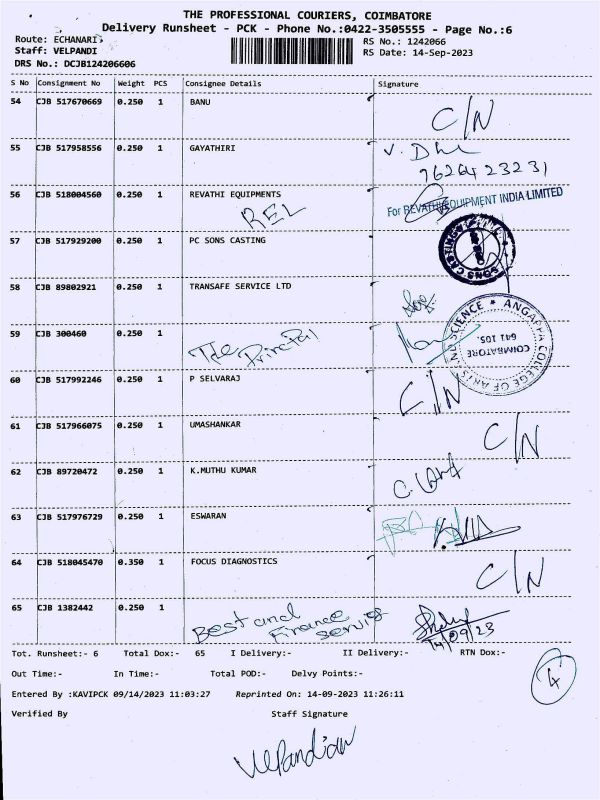 THE PROFESSIONAL COURIERS, COIMBATORE
Delivery Runsheet - PCK - Phone No.:0422-3505555 - Page No.:6
Route: ECHANARI
Staff: VELPANDI
RS No.: 1242066
RS Date: 14-Sep-2023
DRS No.: DCJB124206606
S No Consignment No Weight PCS Consignee Details Signature
54 CJB 517670669 0.250 1 BANU C/N
55 CJB 517958556 0.250 1 GAYATHIRI
56 CJB 518004560 0.250 1 REVATHI EQUIPMENTS For REVATHI EQUIPMENT INDIA LIMITED
REL
57 CJB 517929200 0.250 1 PC SONS CASTING
SONS CASTING
58 CJB 89802921 0.250 1 TRANSAFE SERVICE LTD
59 CJB 300460 0.250 1 The
ANGAPPA COLLEGE OF ARTS AND SCIENCE
COIMBATORE
641 105.
60 CJB 517992246 0.250 1 P SELVARAJ C/N
61 CJB 517966075 0.250 1 UMASHANKAR C/N
62 CJB 89720472 0.250 1 K.MUTHU KUMAR
63 CJB 517976729 0.250 1 ESWARAN
64 CJB 518045470 0.350 1 FOCUS DIAGNOSTICS C/N
65 CJB 1382442 0.250 1 Best and
Finance
Service
14/09/23
Tot. Runsheet:- 6 Total Dox:- 65 I Delivery:- II Delivery:- RTN Dox:-
Out Time:- In Time:- Total POD:- Delvy Points:-
4
Entered By :KAVIPCK 09/14/2023 11:03:27 Reprinted On: 14-09-2023 11:26:11
Verified By Staff Signature
Velpandian